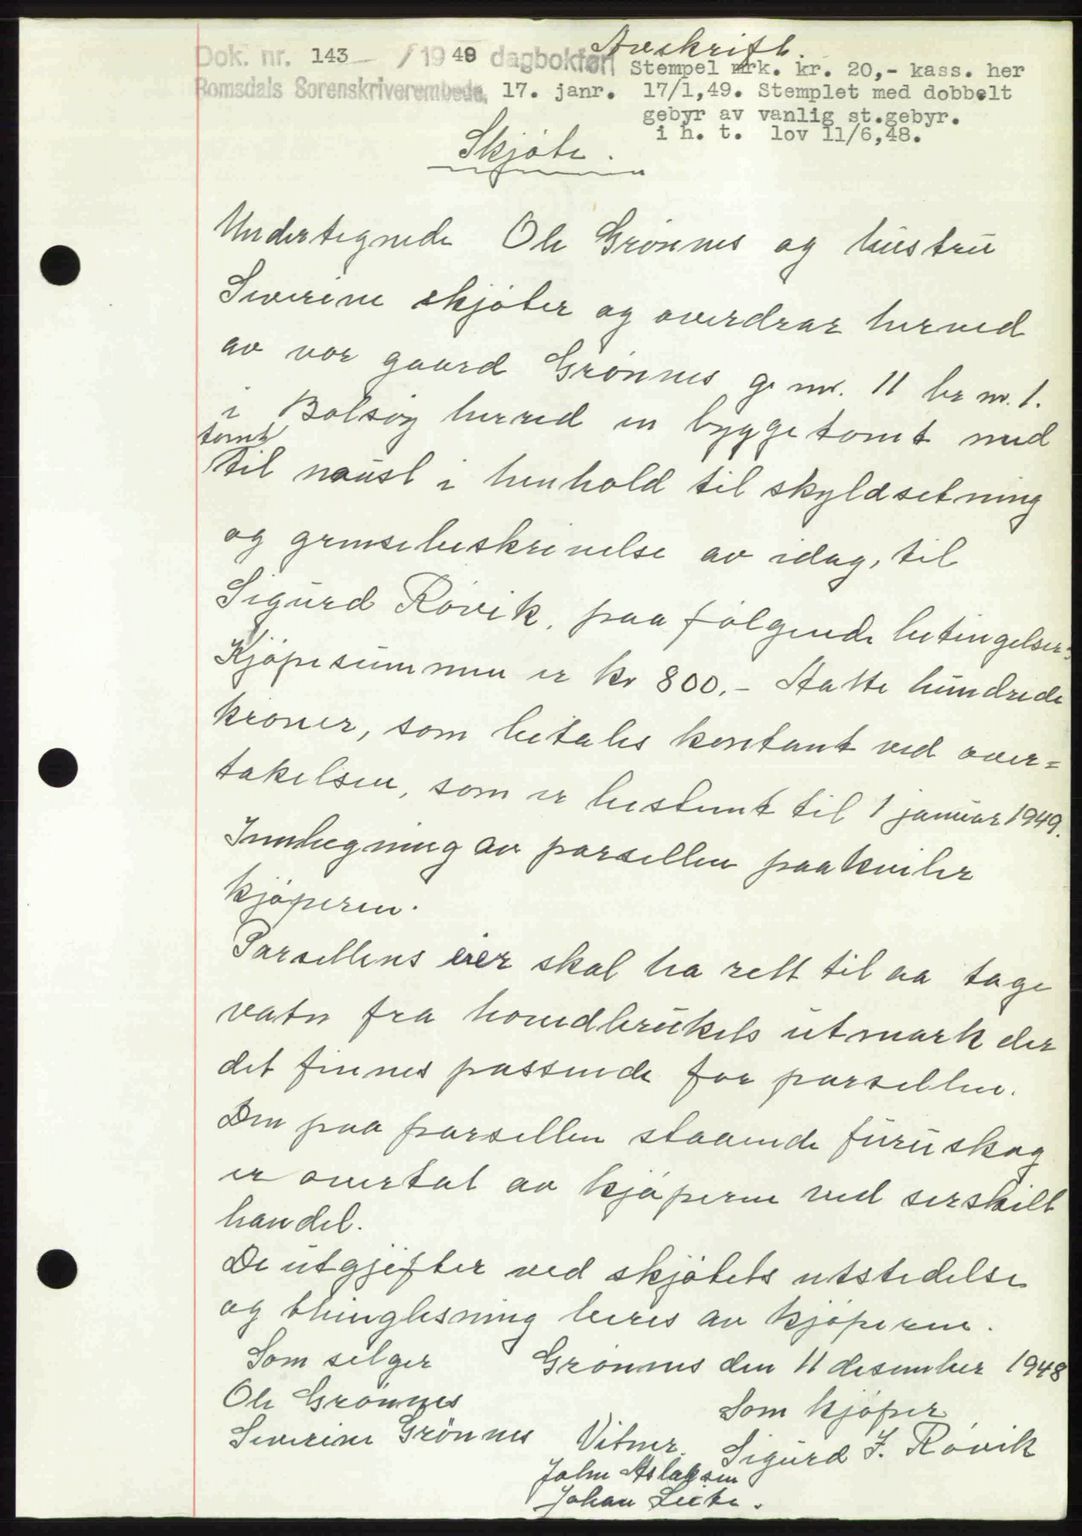 Avskrift.
Dok. nr. 143 / 1949 dagbokført
Stempel mrk. kr. 20,- kass. her
Romsdals Sorenskriverembede, 17. janr. 17/1,49. Stemplet med dobbelt
gebyr av vanlig st.gebyr.
i h. t. lov 11/6,48.
Skjøte.
Undertegnede Ole Grönnes og hustru
Severine skjøter og overdrar herved
av vor gaard Grönnes g. nr. 11 br nr. 1.
i Bolsöy herred en byggetomt med
tomt
til naust i henhold til skyldsetning
og grensebeskrivelse av idag, til
Sigurd Rövik, paa følgende betingelser:
Kjøpesummen er kr 800.- Aatte hundrede
kroner, som betales kontant ved over=
takelsen, som er bestemt til 1 januar 1949.
Innhegning av parsellen paakviler
kjøperen.
Parsellens eier skal ha rett til aa tage
vatn fra hovedbrukets utmark der
det finnes passende for parsellen.
Den paa parsellen staaende furuskog
er overtat av kjøperen ved serskilt
handel.
De utgjefter ved skjøtets utstedelse
og thinglesning beres av kjøperen.
Som selger Grönnes den 11 desember 1948
Ole Grönnes Som kjøper
Severine Grönnes Vitner. Sigurd J. Rövik
John Aslaksen
Johan